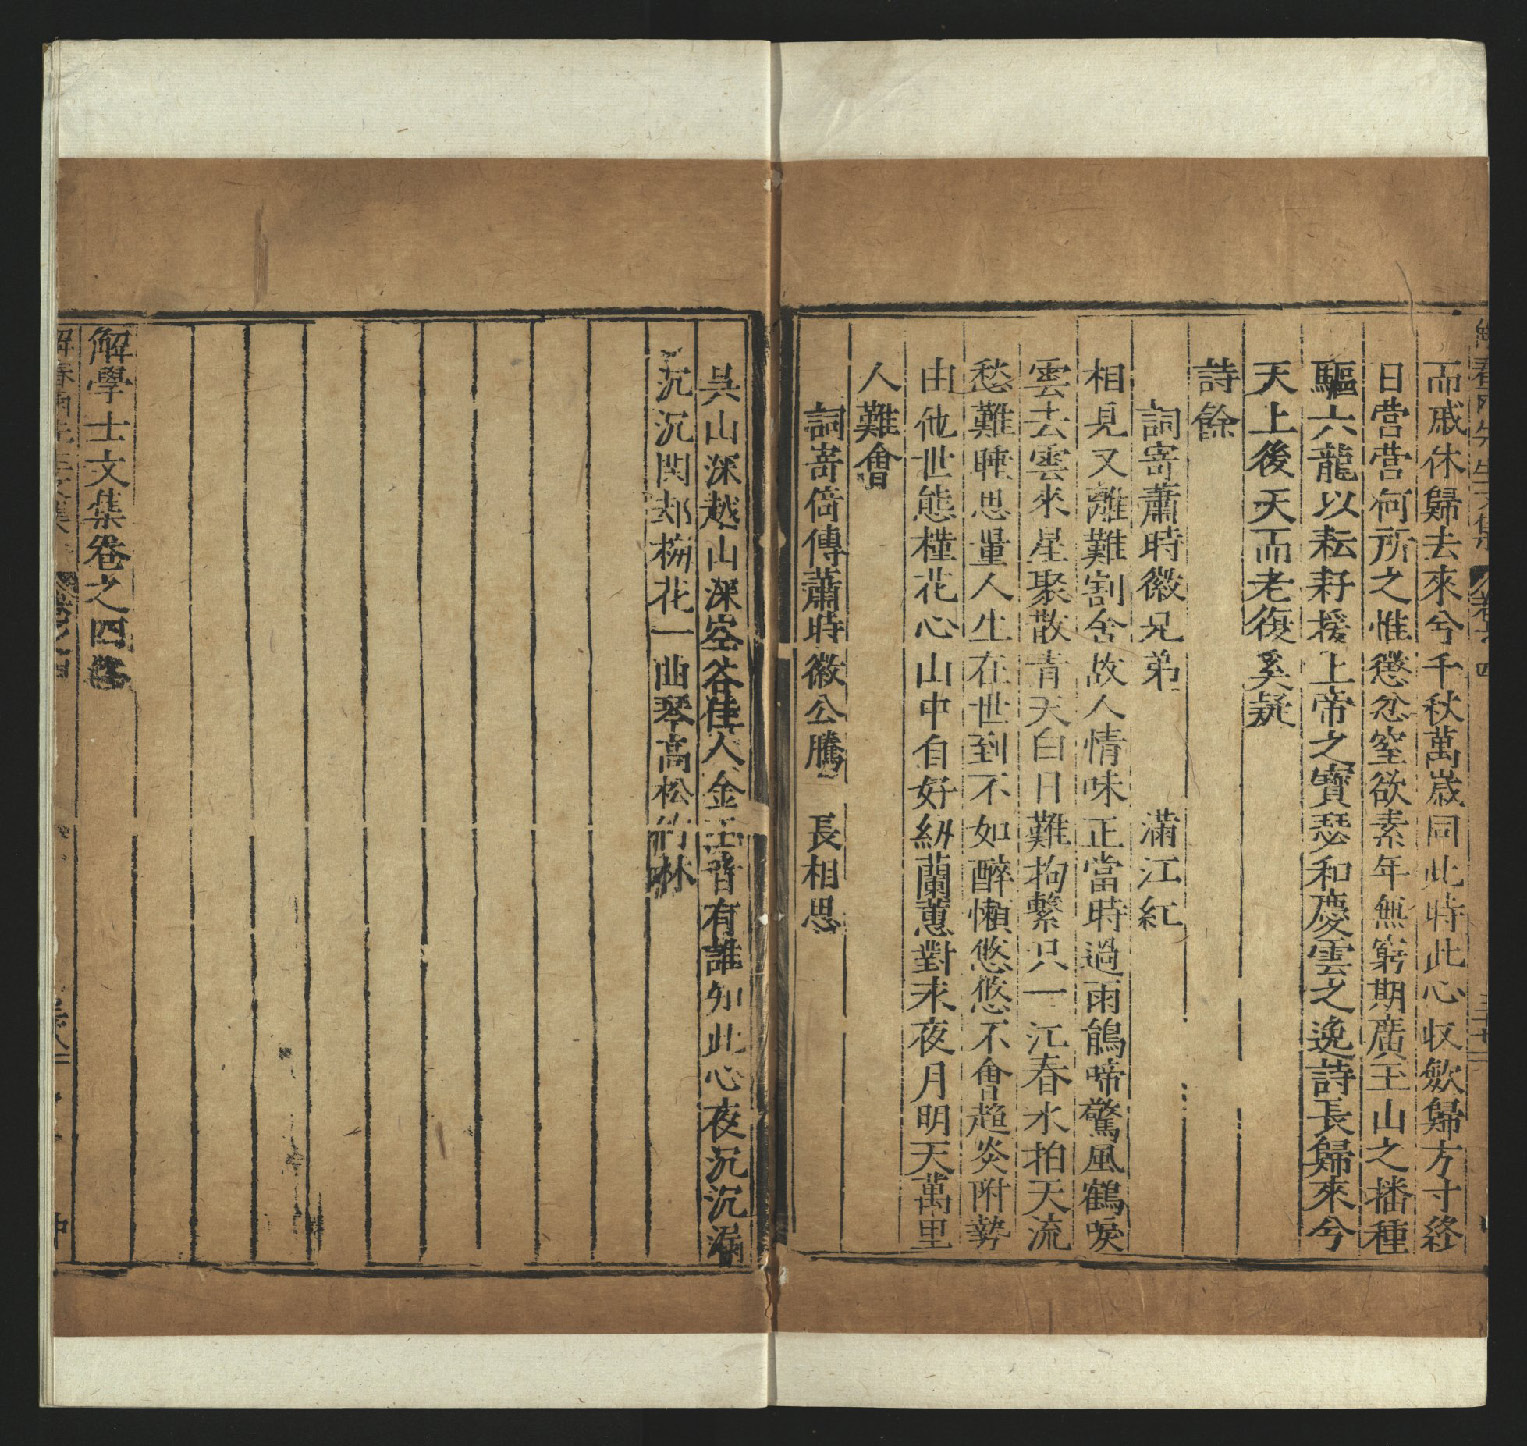 而戚休歸去來兮千秋萬歲同此時此心收斂歸方寸終
日營營何所之惟懲忿窒欲素年無窮期廣主山之播種
驅六龍以耘耔援上帝之寶瑟和慶雲之逸詩長歸來兮
天上後天而老復奚疑
詩餘
詞寄蕭時徽兄弟 滿江紅
相見又離難割舍故人情味正當時過雨鵑啼驚風鶴唳
雲去雲來星聚散青天白日難拘繫只一江春水拍天流
愁難睡思量人生在世到不如醉懶悠悠不會趨炎附勢
由他世態槿花心山中自好紉蘭蕙對永夜月明天萬里
人難會
詞寄倚傳蕭時徽公騰 長相思
吳山深越山深空谷佳人金玉音有誰知此心夜沉沉漏
沉沉閑却梅花一曲琴高松竹林
解學士文集卷之四終
解春雨先生文集 卷之四